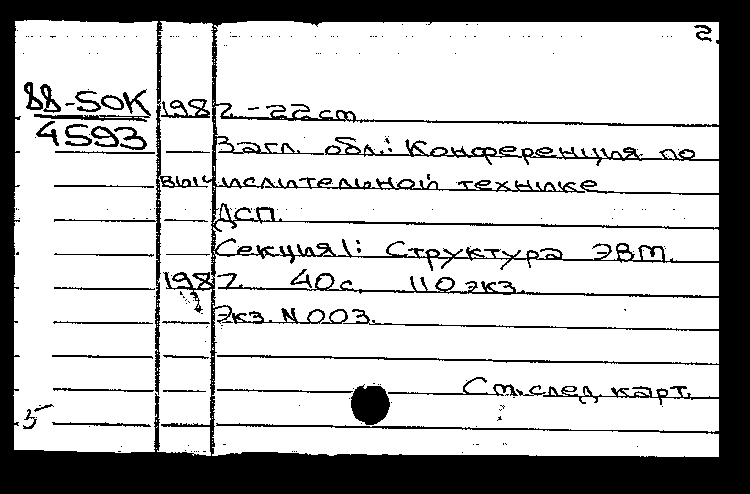 2.
88-50К 1987. - 22 cm
4593 Загл. обл.: Конференция по
вычислительной технике
ДСП.
Секция I: Структура ЭВМ.
1987. 40 с. 110 экз.
Экз. N 003.
См. след. карт.
5